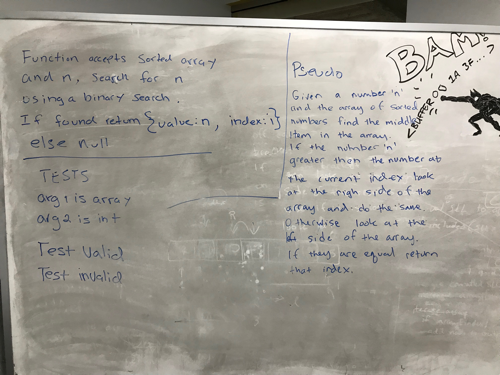 Function accepts sorted array
and n, search for n
using a binary search.
If found return {value:n, index:i}
else null
TESTS
arg 1 is array
arg 2 is int
Test Valid
Test invalid
Pseudo
Given a number 'n'
and the array of sorted
numbers find the middle
item in the array.
If the number 'n'
greater then the number at
the current index look
at the righ side of the
array and do the same
otherwise look at the
side of the array.
If they are equal return
that index.
BAM!